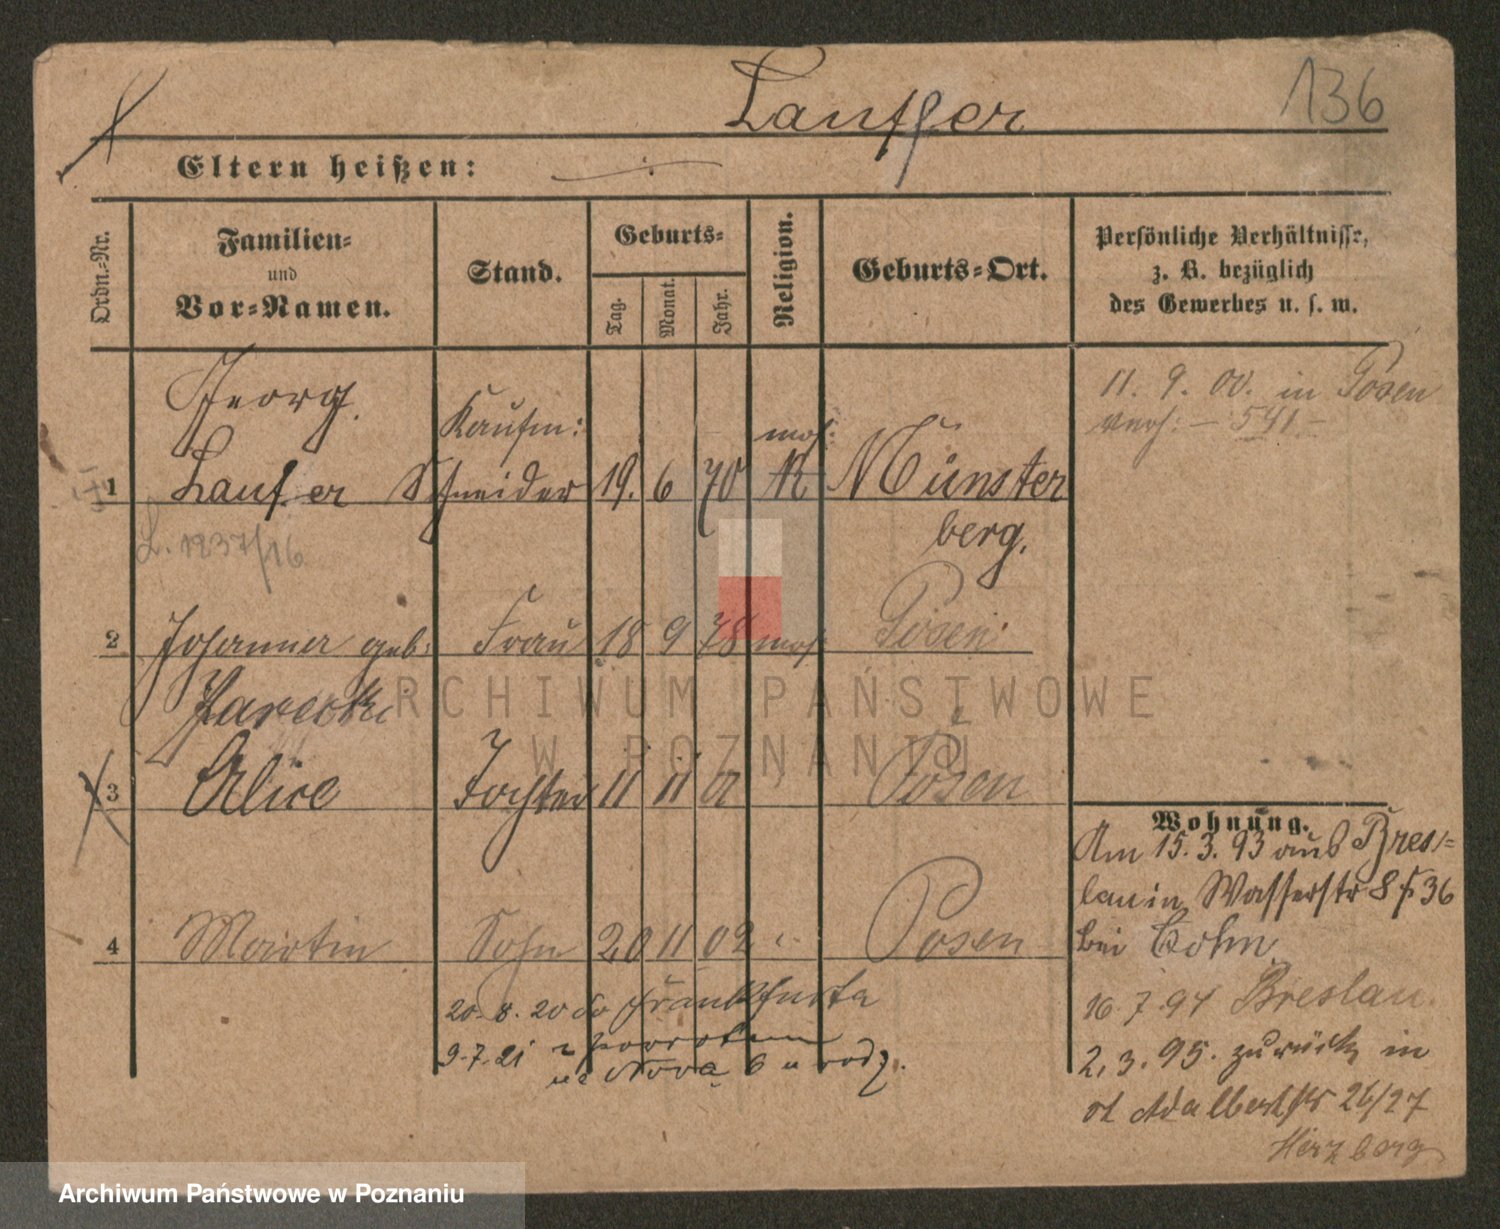 Lauffer
136
Eltern heißen:
Ordn.-Nr.
Familien-
und
Vor-Namen.
Stand.
Geburts-
Tag.
Monat.
Jahr.
Religion.
Geburts-Ort.
Persönliche Verhältnisse,
z. B. bezüglich
des Gewerbes u. s. w.
Georg
11. 9. 00. in Posen
Kaufm:
verh: – 541 –
mos:
1 Laufer Schneider 19. 6 70 K Münster
berg.
L. 1237/16
2 Johanna geb: Frau 18 9 78 mos Posen
3 Alice Tochter 11 11 01 Posen
Wohnung.
Am 15.3.93 aus Bres-
lau in Wasserstr 8 36
bei Cohn
4 Martin Sohn 20 11 02 Posen
20.8.20 do Frankfurta
16. 7 94 Breslau.
9.7.21 z powrotem
na Nowa 6 u rodz.
2. 3. 95. zurück in
Adalbertstr 26/27
Herzberg
ARCHIWUM PAŃSTWOWE
W POZNANIU
Archiwum Państwowe w Poznaniu